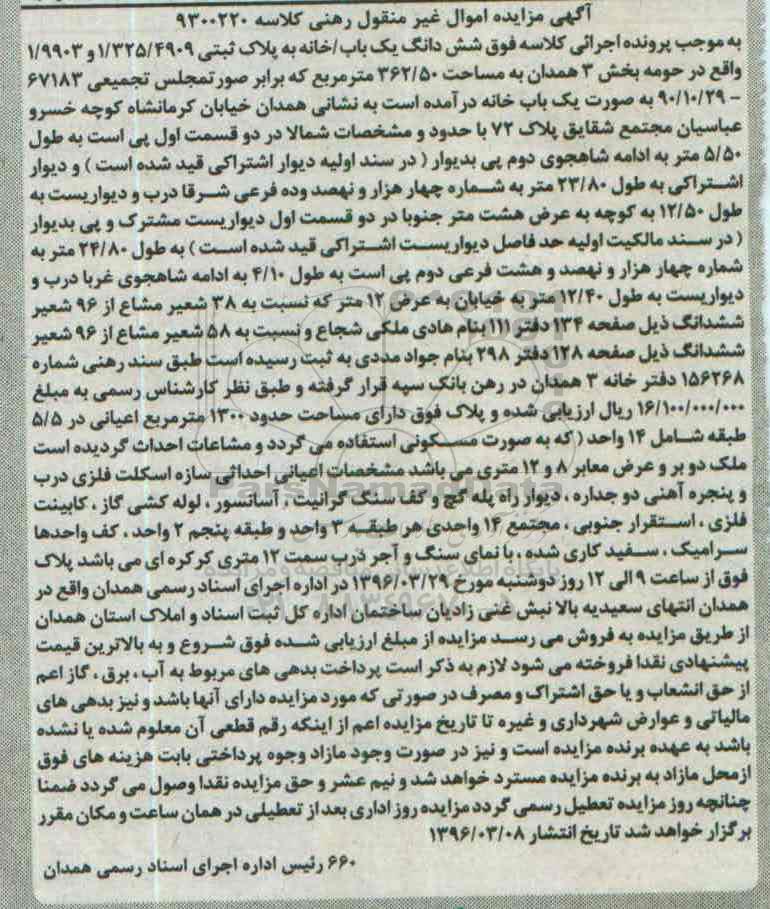 آگهی مزایده اموال غیر منقول رهنی کلاسه ۹۳۰۰۲۲۰
به موجب پرونده اجرائی کلاسه فوق شش دانگ یک باب/خانه به پلاک ثبتی ۱/۳۲۵/۴۹۰۹ و ۱/۹۹۰۳
واقع در حومه بخش ۳ همدان به مساحت ۳۶۲/۵۰ مترمربع که برابر صورتمجلس تجمیعی ۶۷۱۸۳
– ۹۰/۱۰/۲۹ به صورت یک باب خانه درآمده است به نشانی همدان خیابان کرمانشاه کوچه خسرو
عباسیان مجتمع شقایق پلاک ۷۲ با حدود و مشخصات شمالا در دو قسمت اول پی است به طول
۵/۵۰ متر به ادامه شاهجوی دوم پی بدیوار ( در سند اولیه دیوار اشتراکی قید شده است ) و دیوار
اشتراکی به طول ۲۳/۸۰ متر به شماره چهار هزار و نهصد وده فرعی شرقا درب و دیواریست به
طول ۱۲/۵۰ به کوچه به عرض هشت متر جنوبا در دو قسمت اول دیواریست مشترک و پی بدیوار
( در سند مالکیت اولیه حد فاصل دیواریست اشتراکی قید شده است ) به طول ۲۴/۸۰ متر به
شماره چهار هزار و نهصد و هشت فرعی دوم پی است به طول ۴/۱۰ به ادامه شاهجوی غربا درب و
دیواریست به طول ۱۲/۴۰ متر به خیابان به عرض ۱۲ متر که نسبت به ۳۸ شعیر مشاع از ۹۶ شعیر
ششدانگ ذیل صفحه ۱۳۴ دفتر ۱۱۱ بنام هادی ملکی شجاع و نسبت به ۵۸ شعیر مشاع از ۹۶ شعیر
ششدانگ ذیل صفحه ۱۲۸ دفتر ۲۹۸ بنام جواد مددی به ثبت رسیده است طبق سند رهنی شماره
۱۵۶۲۶۸ دفتر خانه ۳ همدان در رهن بانک سپه قرار گرفته و طبق نظر کارشناس رسمی به مبلغ
۱۶/۱۰۰/۰۰۰/۰۰۰ ریال ارزیابی شده و پلاک فوق دارای مساحت حدود ۱۳۰۰ مترمربع اعیانی در ۵/۵
طبقه شامل ۱۴ واحد ( که به صورت مسکونی استفاده می گردد و مشاعات احداث گردیده است
ملک دو بر و عرض معابر ۸ و ۱۲ متری می باشد مشخصات اعیانی احداثی سازه اسکلت فلزی درب
و پنجره آهنی دو جداره ، دیوار راه پله گچ و کف سنگ گرانیت ، آسانسور ، لوله کشی گاز ، کابینت
فلزی ، استقرار جنوبی ، مجتمع ۱۴ واحدی هر طبقه ۳ واحد و طبقه پنجم ۲ واحد ، کف واحدها
سرامیک ، سفید کاری شده ، با نمای سنگ و آجر درب سمت ۱۲ متری کرکره ای می باشد پلاک
فوق از ساعت ۹ الی ۱۲ روز دوشنبه مورخ ۱۳۹۶/۰۳/۲۹ در اداره اجرای اسناد رسمی همدان واقع در
همدان انتهای سعیدیه بالا نبش غنی زادیان ساختمان اداره کل ثبت اسناد و املاک استان همدان
از طریق مزایده به فروش می رسد مزایده از مبلغ ارزیابی شده فوق شروع و به بالاترین قیمت
پیشنهادی نقدا فروخته می شود لازم به ذکر است پرداخت بدهی های مربوط به آب ، برق ، گاز اعم
از حق انشعاب و یا حق اشتراک و مصرف در صورتی که مورد مزایده دارای آنها باشد و نیز بدهی های
مالیاتی و عوارض شهرداری و غیره تا تاریخ مزایده اعم از اینکه رقم قطعی آن معلوم شده یا نشده
باشد به عهده برنده مزایده است و نیز در صورت وجود مازاد وجوه پرداختی بابت هزینه های فوق
ازمحل مازاد به برنده مزایده مسترد خواهد شد و نیم عشر و حق مزایده نقدا وصول می گردد ضمنا
چنانچه روز مزایده تعطیل رسمی گردد مزایده روز اداری بعد از تعطیلی در همان ساعت و مکان مقرر
برگزار خواهد شد تاریخ انتشار ۱۳۹۶/۰۳/۰۸
۶۶۰ رئیس اداره اجرای اسناد رسمی همدان
ParsNamadData